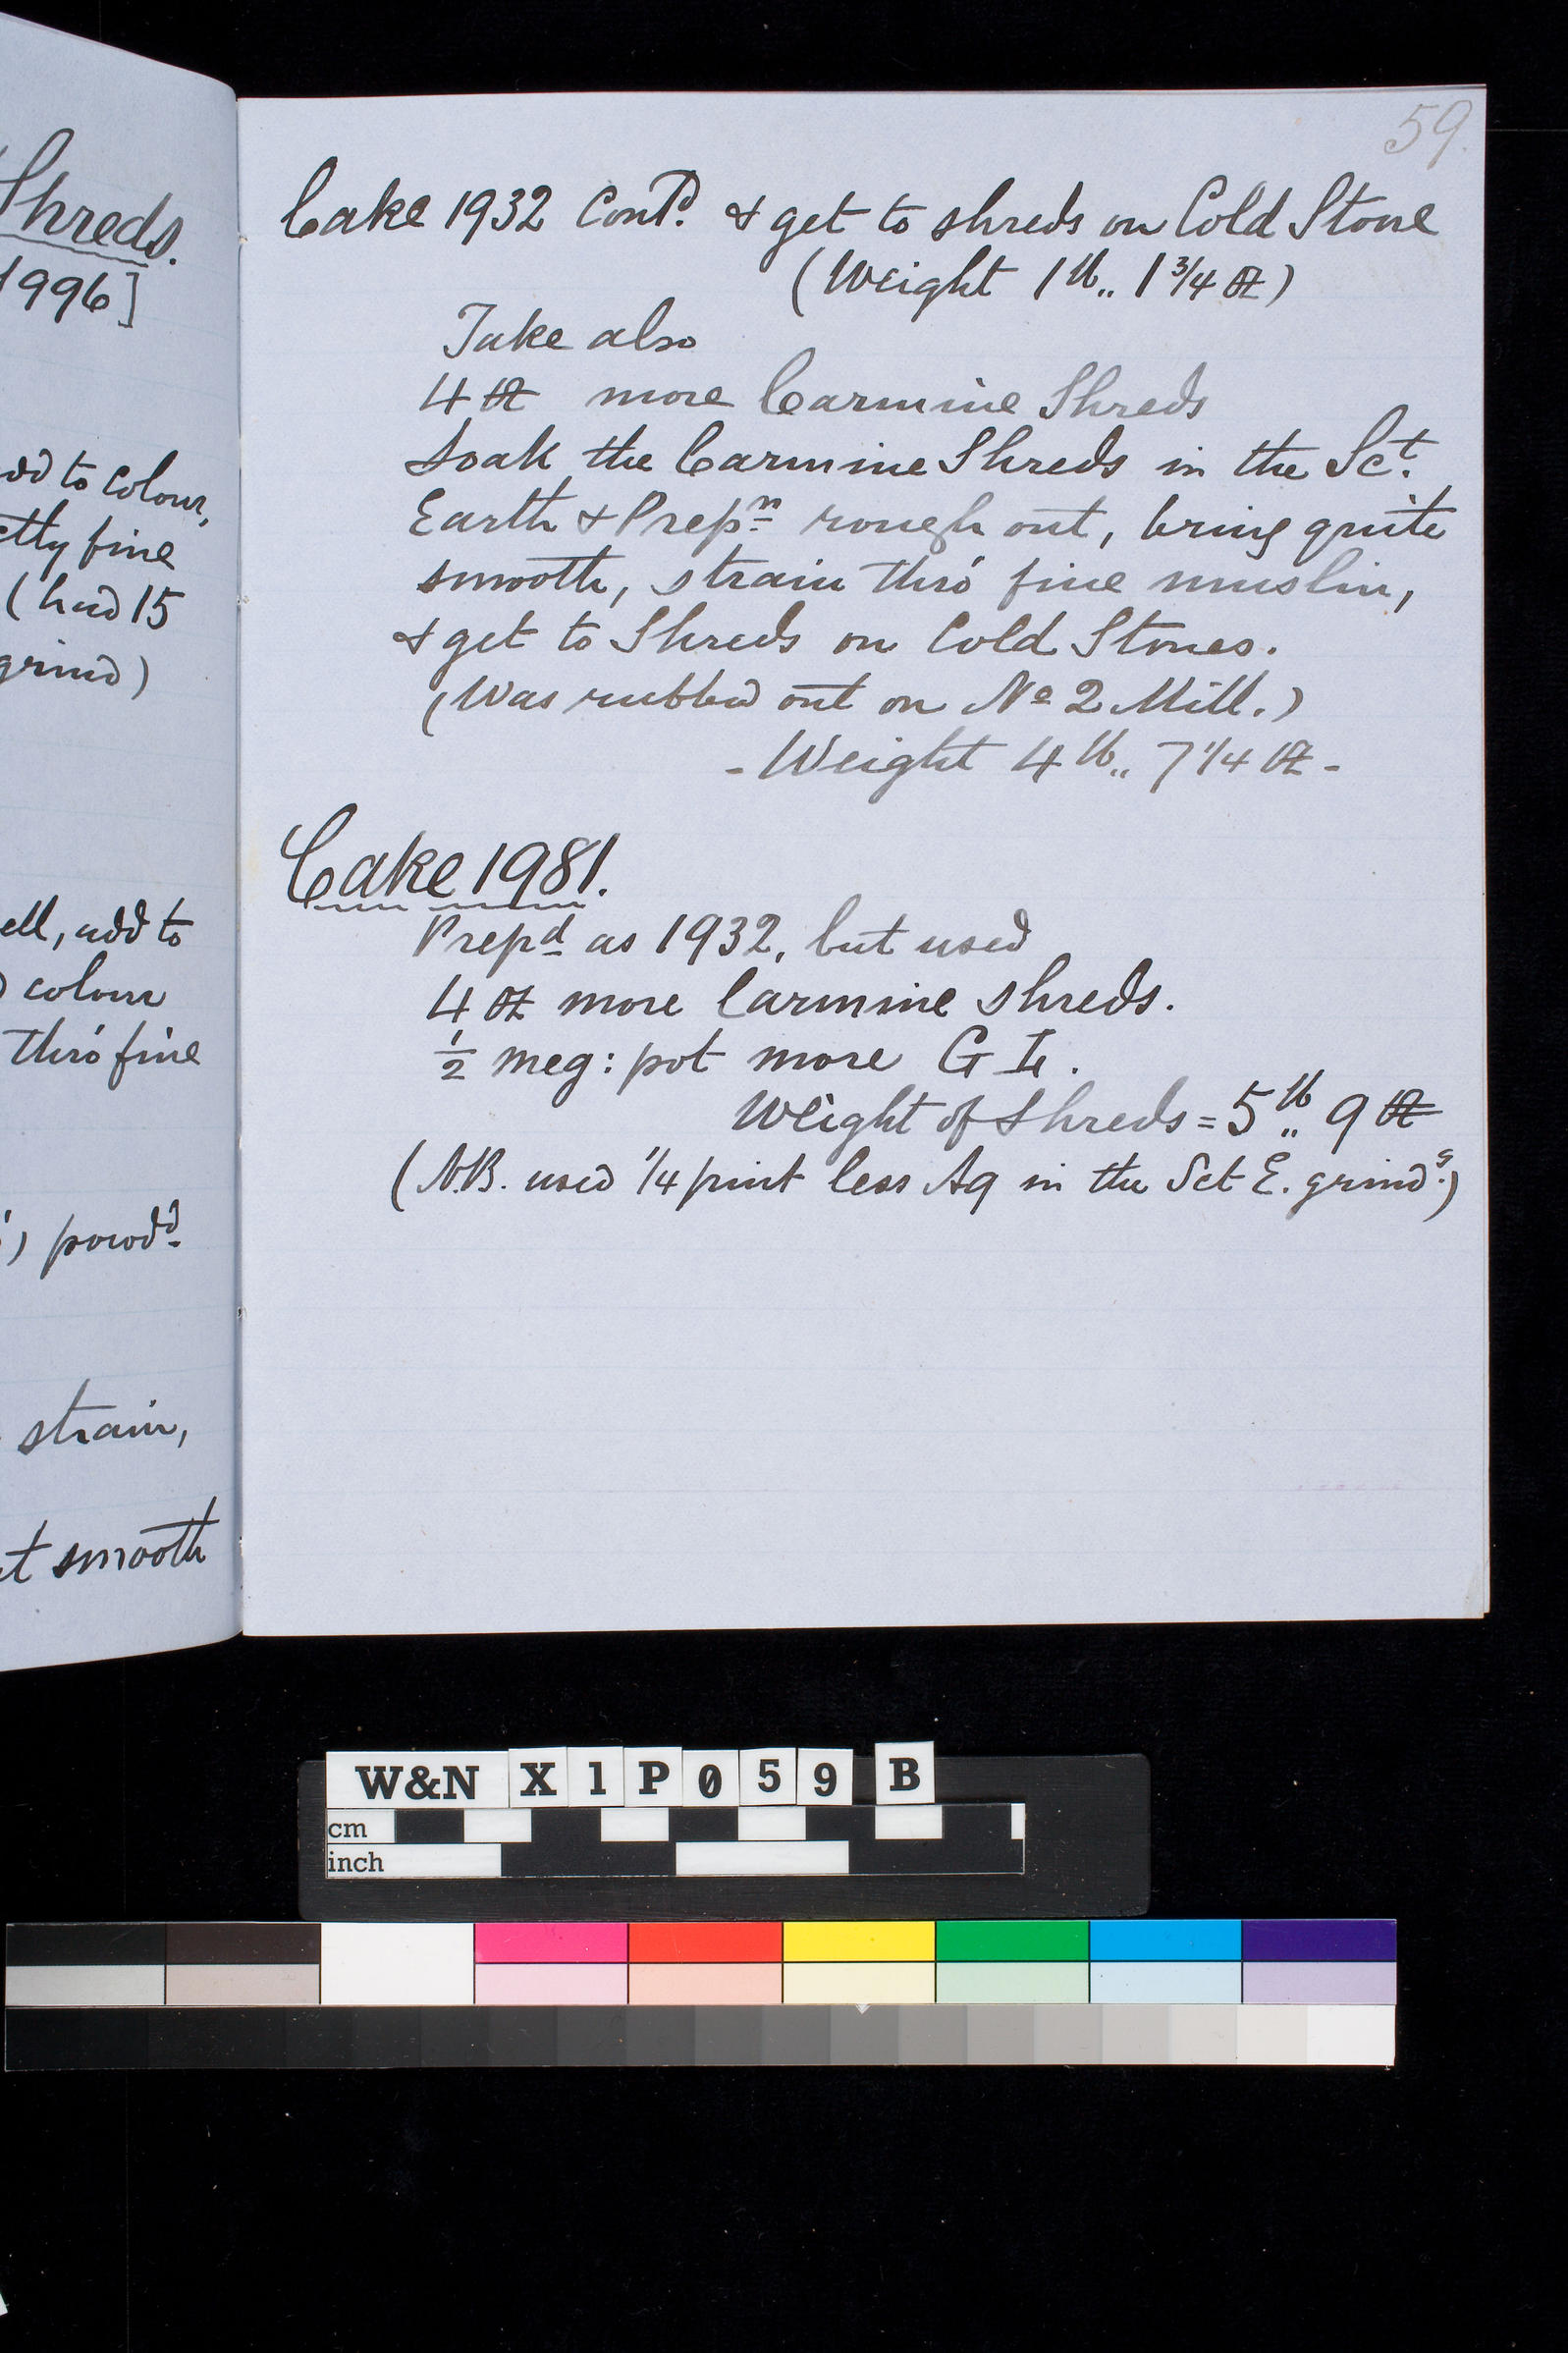 Shreds.
1996]
add to colour,
ctly fine
(had 15
grind)
ell, add to
colour
thro' fine
) powdd.
strain,
t smooth
59.
Cake 1932 Contd. & get to shreds on Cold Stone
(Weight 1 lb,, 1 3/4 oz)
Take also
4 oz more Carmine Shreds
Soak the Carmine Shreds in the Sct.
Earth & Prepn rough out, bring quite
smooth, strain thro' fine muslin,
& get to Shreds on Cold Stones.
(Was rubbed out on No 2 Mill.)
- Weight 4 lb,, 7 1/4 oz -
Cake 1981.
Prepd as 1932, but used
4 oz more Carmine shreds.
1/2 meg: pot more G
Weight of Shreds = 5 lb,, 9 oz
(N.B. used 1/4 pint less Aq in the Sct E. grindg.)
W&N X 1 P 0 5 9 B
cm
inch